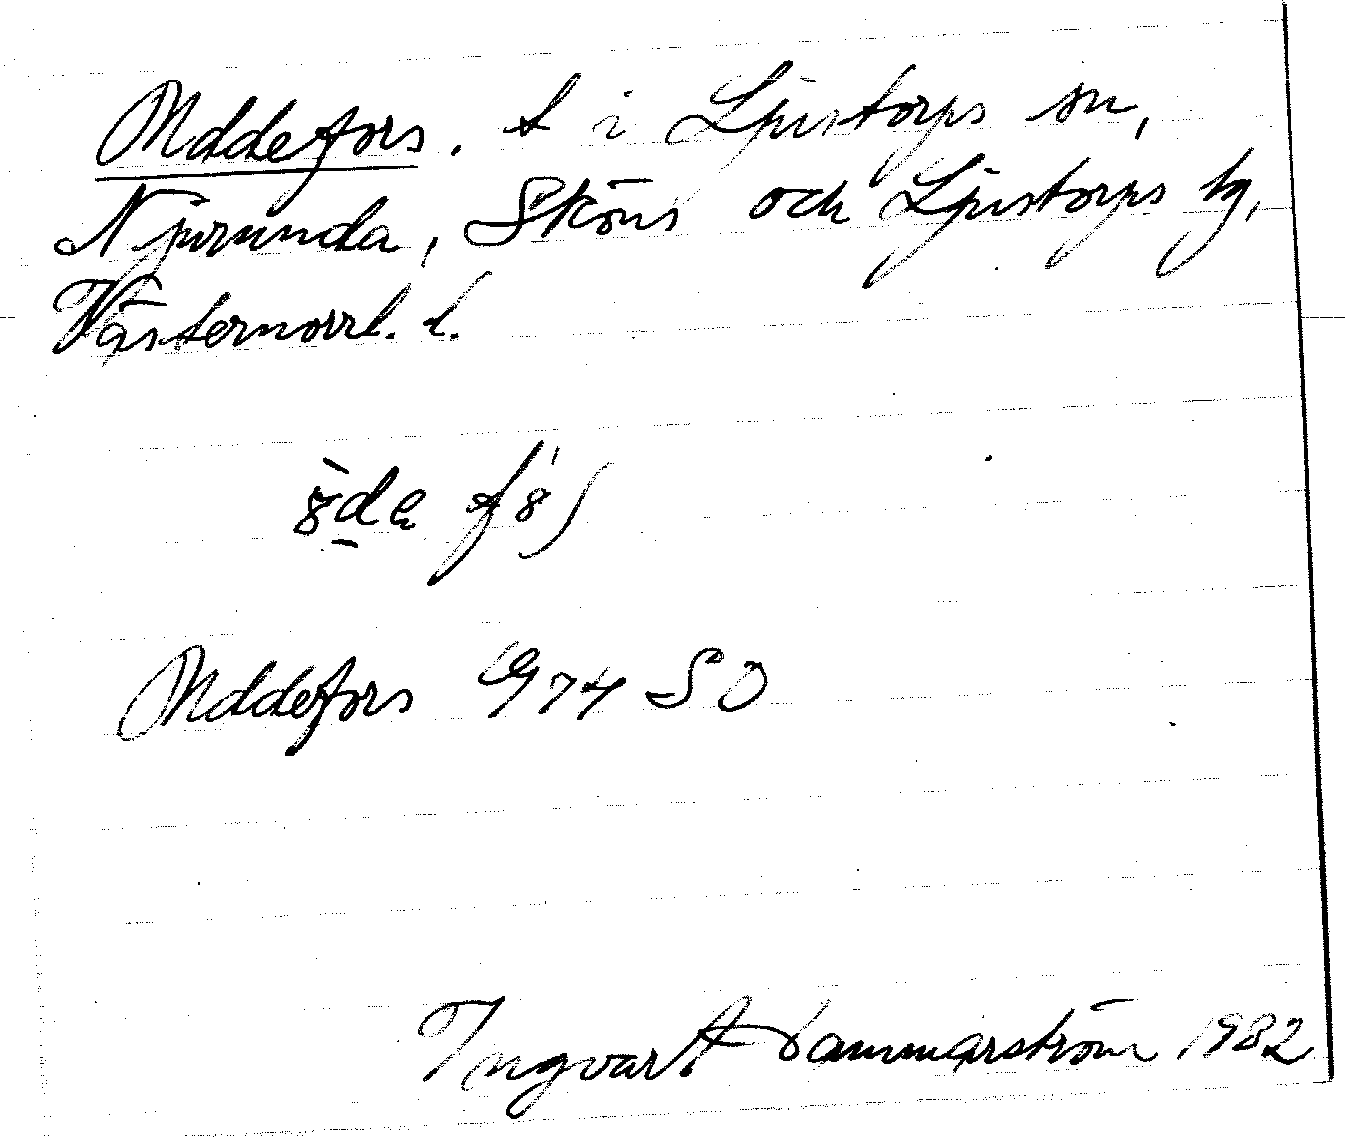 Uddefors. t i Ljustorps sn,
Njurunda, Sköns och Ljustorps tg,
Västernorrl. l.
Uddefors G 74 SO
Ingvar Hammarström 1982